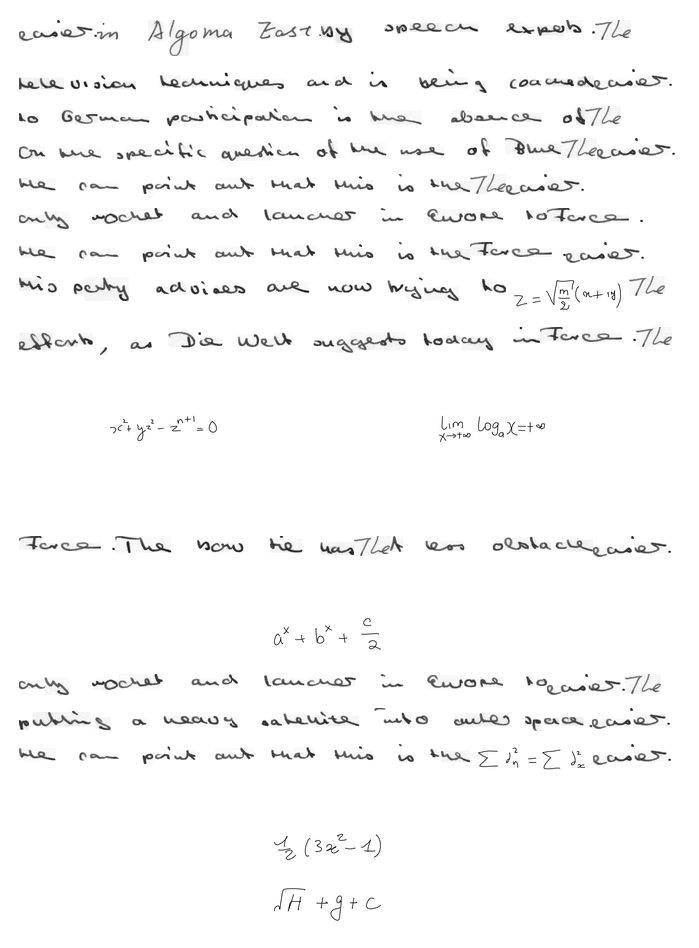 easier. in Algoma East. by speech experts. The
television techniques and is being coached easier.
to German participation is the absence of The
On the specific question of the use of Blue The easier.
He can point out that this is the The easier.
only rocket and launcher in Europe to Force .
He can point out that this is the Force easier.
His party advisers are now trying to z = √(m/2) (x + iy) The
efforts, as Die Welt suggests today in Force . The
x² + yz² - z^{n+1} = 0
lim_{x→+∞} log_a x = +∞
Force . The bow tie has The less obstacle easier.
a^x + b^x + c/2
only rocket and launcher in Europe to easier. The
putting a heavy satellite into outer space easier.
He can point out that this is the ∑ d_n^2 = ∑ d_x^2 easier.
1/2 (3x² - 1)
√H + g + c